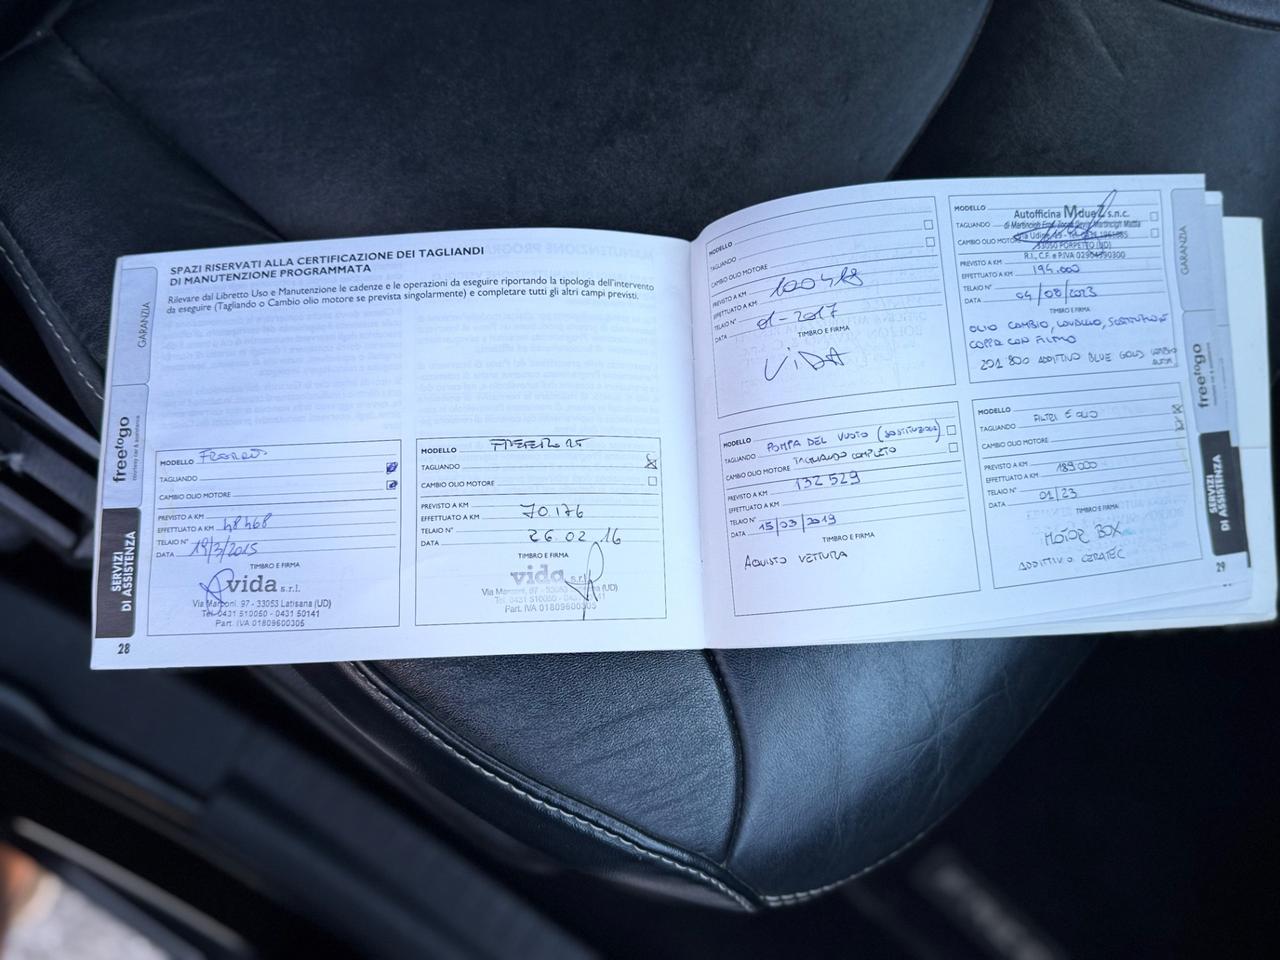 SPAZI RISERVATI ALLA CERTIFICAZIONE DEI TAGLIANDI
DI MANUTENZIONE PROGRAMMATA
Rilevare dal Libretto Uso e Manutenzione le cadenze e le operazioni da eseguire riportando la tipologia dell'intervento
da eseguire (Tagliando o Cambio olio motore se prevista singolarmente) e completare tutti gli altri campi previsti.
GARANZIA
freetogo
SERVIZI
DI ASSISTENZA
28
MODELLO
TAGLIANDO
CAMBIO OLIO MOTORE
PREVISTO A KM
EFFETTUATO A KM 48468
TELAIO N°
DATA 19/3/2015
TIMBRO E FIRMA
vida s.r.l.
Via Marconi, 97 - 33053 Latisana (UD)
Tel. 0431 510050 - 0431 50141
Part. IVA 01809600305
MODELLO
TAGLIANDO
CAMBIO OLIO MOTORE
PREVISTO A KM
EFFETTUATO A KM 70.176
TELAIO N°
DATA 26.02.16
TIMBRO E FIRMA
vida s.r.l.
Via Marconi, 97 - 33053 Latisana (UD)
Tel. 0431 510050 - 0431 50141
Part. IVA 01809600305
MODELLO
TAGLIANDO
CAMBIO OLIO MOTORE
PREVISTO A KM 100418
EFFETTUATO A KM
TELAIO N° 01-2017
DATA
TIMBRO E FIRMA
VIDA
MODELLO POMPA DEL VUOTO (SOSTITUZIONE)
TAGLIANDO TAGLIANDO COMPLETO
CAMBIO OLIO MOTORE
PREVISTO A KM 132529
EFFETTUATO A KM
TELAIO N° 15/03/2019
DATA
TIMBRO E FIRMA
ACQUISTO VETTURA
MODELLO
Autofficina MdueZ s.n.c.
TAGLIANDO
CAMBIO OLIO MOTORE
33050 PORPETTO (UD)
R.I., C.F. e P.IVA 02904990300
PREVISTO A KM
EFFETTUATO A KM 194.000
TELAIO N°
DATA 04/08/2023
TIMBRO E FIRMA
OLIO CAMBIO, LAVAGGIO, SOSTITUZIONE
COPPA CON FILTRO
201.800 ADDITIVO BLUE GOLD CAMBIO
MODELLO FILTRI E OLIO
TAGLIANDO
CAMBIO OLIO MOTORE
PREVISTO A KM
EFFETTUATO A KM 189000
TELAIO N°
DATA 01/23
TIMBRO E FIRMA
MOTOR BOX
ADDITIVO CERATEC
GARANZIA
freetogo
SERVIZI
DI ASSISTENZA
29